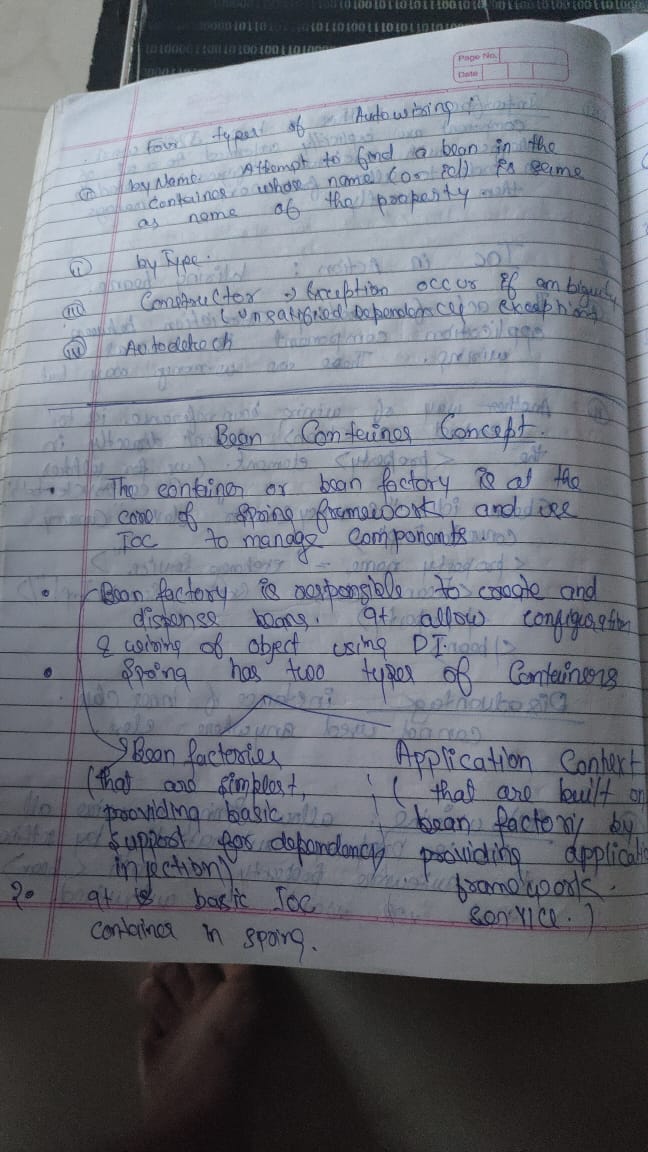 Page No.
Date
four types of Autowiring :
(i) by Name: Attempt to find a bean in the
container whose name (or id) is same
as name of the property
(ii) by Type.
(iii) Constructor → Exception occur if ambiguity
(unsatisfied Dependency exception)
(iv) Autodetech
Bean Container Concept.
• The container or bean factory is at the
core of spring framework and use
IOC to manage components
• Bean factory is responsible to create and
dispense beans. It allow configuration
& wiring of object using DI.
• Spring has two types of Containers
Bean factories
(that are simplest,
providing basic
support for dependency
injection)
It is basic IOC
container in spring.
Application Context
( that are built on
bean factory by
providing applicatio
framework
service.)